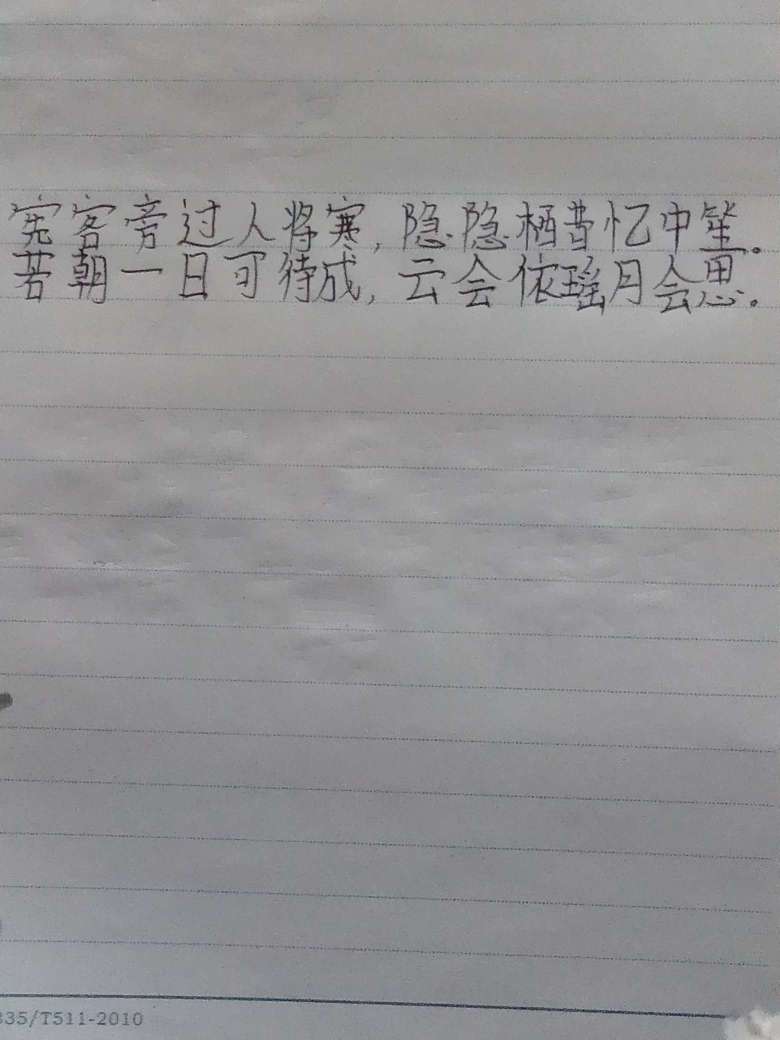 宪客旁过人将寒,隐隐栖昔忆中笙。
若朝一日可待成,云会依瑶月会思。
335/T511-2010